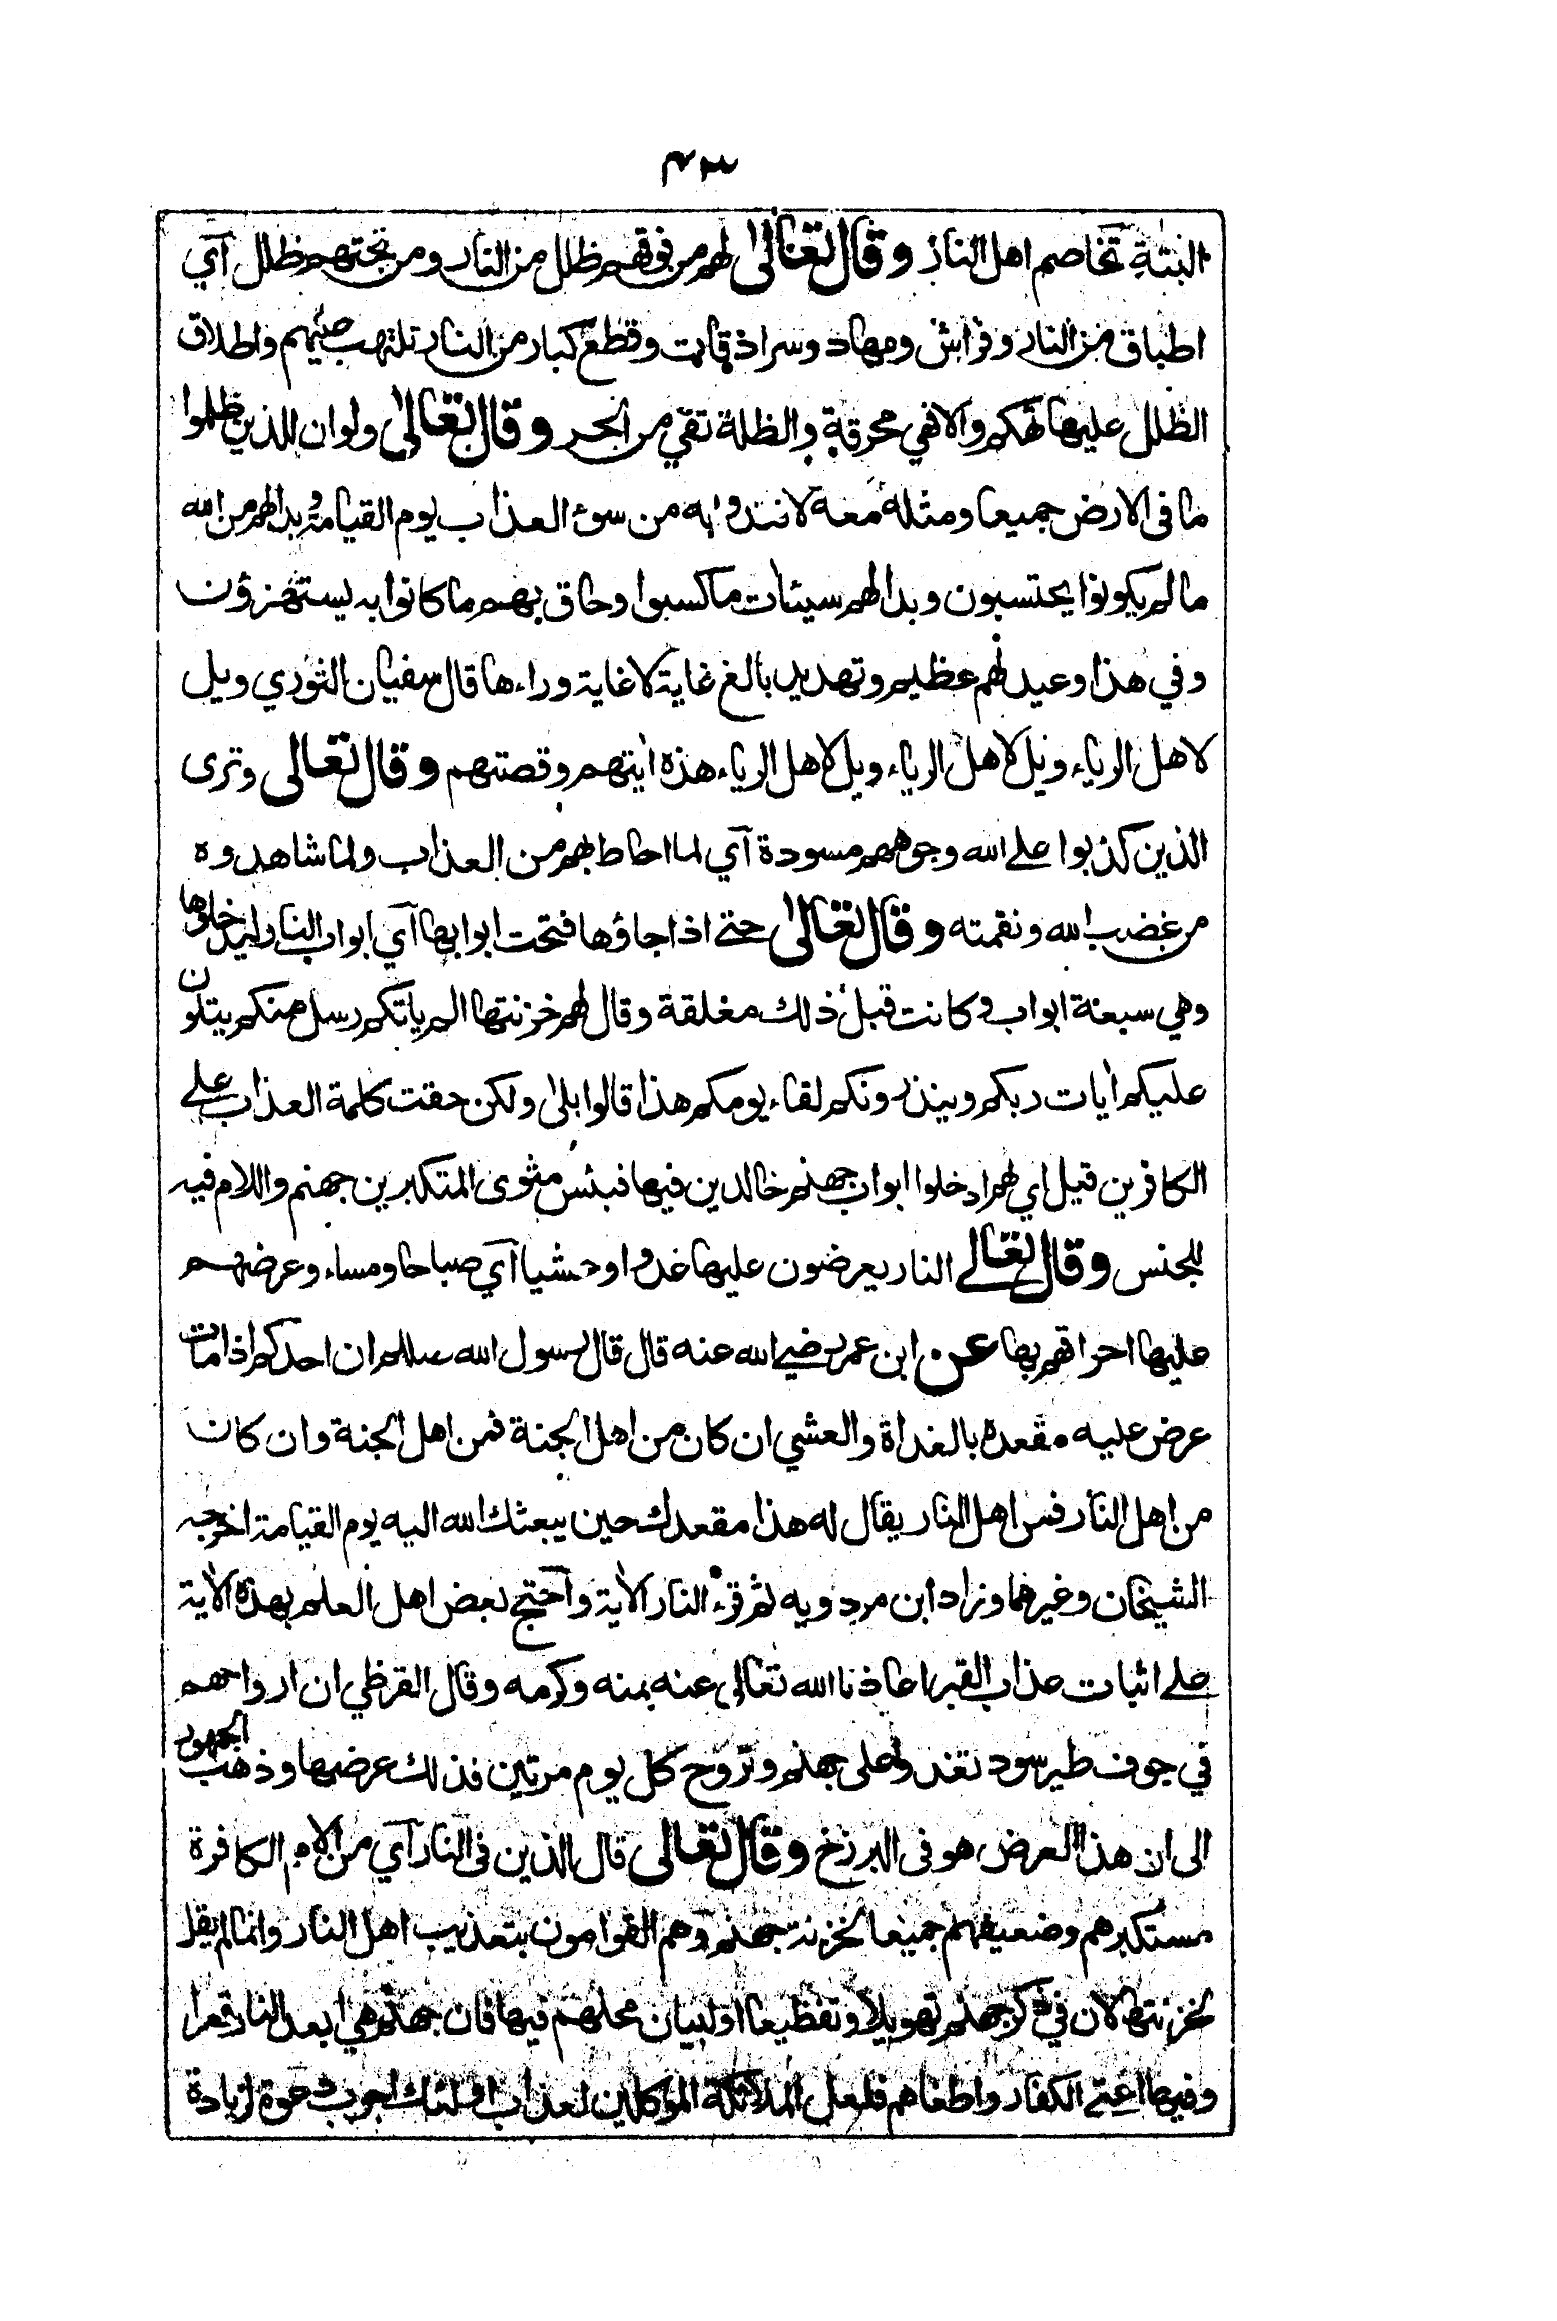 ٤٣
البتة تخاصم اهل النار وقال تعالى لهم من فوقهم ظلل من النار ومن تحتهم ظلل آي
اطباق من النار وفراش ومهاد وسراذقات وقطع كبار من النار تلتهب عليهم واطلاق
الظلل عليها تهكم والافهي محرقة والظلة تقي من الحر وقال تعالى ولوان للذين ظلموا
ما فى الارض جميعا ومثله معه لافتدوا به من سوء العذاب يوم القيامة وبدالهم من الله
مالم يكونوا يحتسبون وبدالهم سيئات ماكسبوا وحاق بهم ماكانوا به يستهزؤن
وفي هذا وعيد لهم عظيم وتهديد بالغ غاية لا غاية وراءها قال سفيان الثوري ويل
لاهل الرياء ويل لاهل الرياء ويل لاهل الرياء هذه ايتهم وقصتهم وقال تعالى وترى
الذين كذبوا على الله وجوههم مسودة آي لما احاط بهم من العذاب ولما شاهدوه
من غضب الله ونقمته وقال تعالى حتى اذا جاؤها فتحت ابوابها آي ابواب النار ليدخلوها
وهي سبعة ابواب وكانت قبل ذلك مغلقة وقال لهم خزنتها الم ياتكم رسل منكم يتلون
عليكم ايات ربكم وينذرونكم لقاء يومكم هذا قالوا بلى ولكن حقت كلمة العذاب على
الكافرين قيل اي لهم ادخلوا ابواب جهنم خالدين فيها فبئس مثوى المتكبرين جهنم واللام فيه
للجنس وقال تعالى النار يعرضون عليها غدوا وعشيا آي صباحا ومساء وعرضهم
عليها احراقهم بها عن ابن عمر رضي الله عنه قال قال رسول الله صللم ان احدكم اذا مات
عرض عليه مقعده بالغداة والعشي ان كان من اهل الجنة فمن اهل الجنة وان كان
من اهل النار فمن اهل النار يقال له هذا مقعدك حين يبعثك الله اليه يوم القيامة اخرجه
الشيخان وغيرهما وزاد ابن مردويه ثم قرء النار الاية وآحتج بعض اهل العلم بهذه الاية
على اثبات عذاب القبر اعاذنا الله تعالى عنه بمنه وكرمه وقال القرظي ان ارواحهم
في جوف طير سود تغدو على جهنم وتروح كل يوم مرتين فذلك عرضها وذهب الجمهور
الى ان هذا العرض هو فى البرزخ وقال تعالى قال الذين فى النار آي من الامم الكافرة
مستكبرهم وضعيفهم جميعا لخزنة جهنم وهم القوامون بتعذيب اهل النار وانما لم يقل
لخزنتها لان في ذكر جهنم تهويلا وتفظيعا اولبيان محلهم فيها فان جهنم هي ابعد النار قعرا
وفيها اعتى الكفار واطغاهم فلعل الملائكة الموكلين لعذاب اولئك اجوب دعوة لزيادة